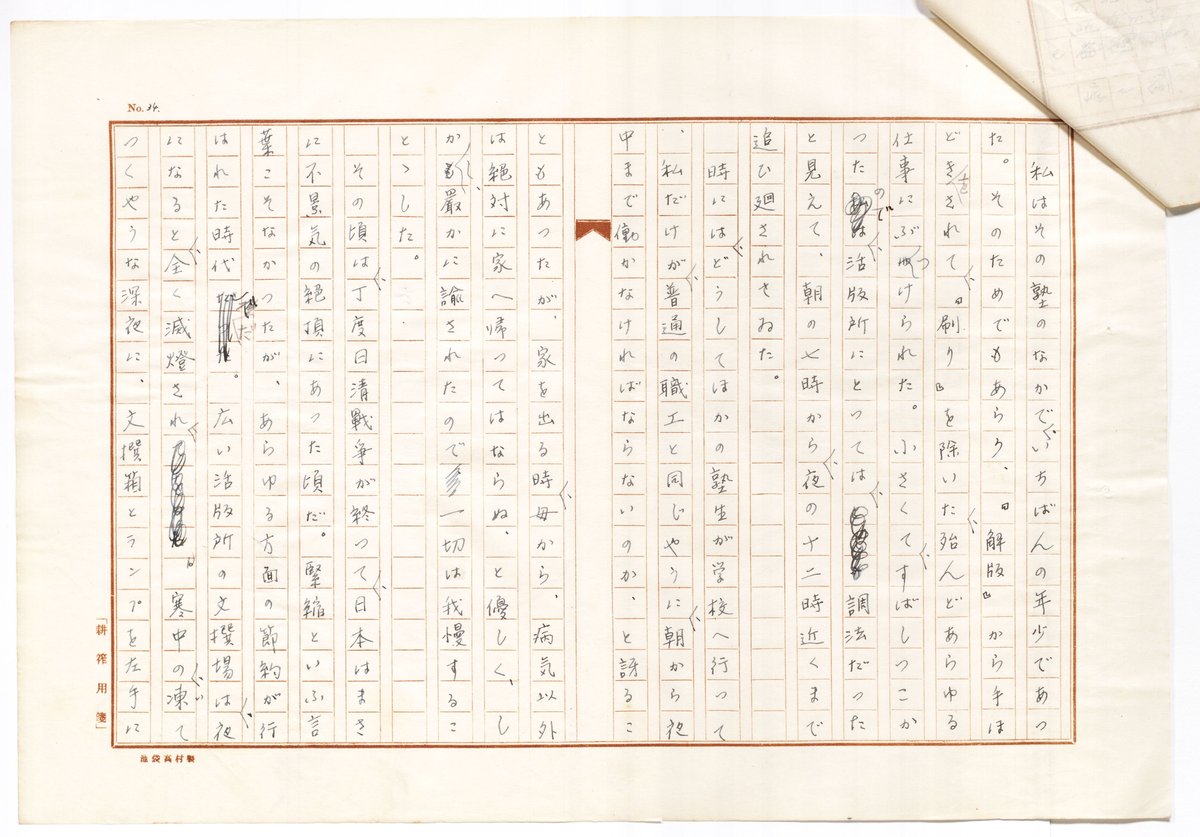 No. 34.
私はその塾のなかでいちばんの年少であつ
た。そのためでもあらう、『解版』から手ほ
どきをされて『刷り』を除いた殆んどあらゆる
仕事にぶつけられた。小さくてすばしつこか
つたので活版所にとつては調法だつた
と見えて、朝の七時から夜の十二時近くまで
追ひ廻されてゐた。
時にはどうしてほかの塾生が学校へ行つて
、私だけが普通の職工と同じやうに朝から夜
中まで働かなければならないのか、と訝るこ
ともあつたが、家を出る時母から、病気以外
は絶対に家へ帰つてはならぬ、と優しく、し
かし、厳かに諭されたので一切は我慢するこ
とゝした。
その頃は丁度日清戦争が終つて日本はまさ
に不景気の絶頂にあつた頃だ。緊縮といふ言
葉こそなかつたが、あらゆる方面の節約が行
はれた時代だ。広い活版所の文撰場は夜
になると全く滅燈され 寒中の凍て
つくやうな深夜に、文撰箱とランプを左手に
「耕筰用箋」
池袋高村製